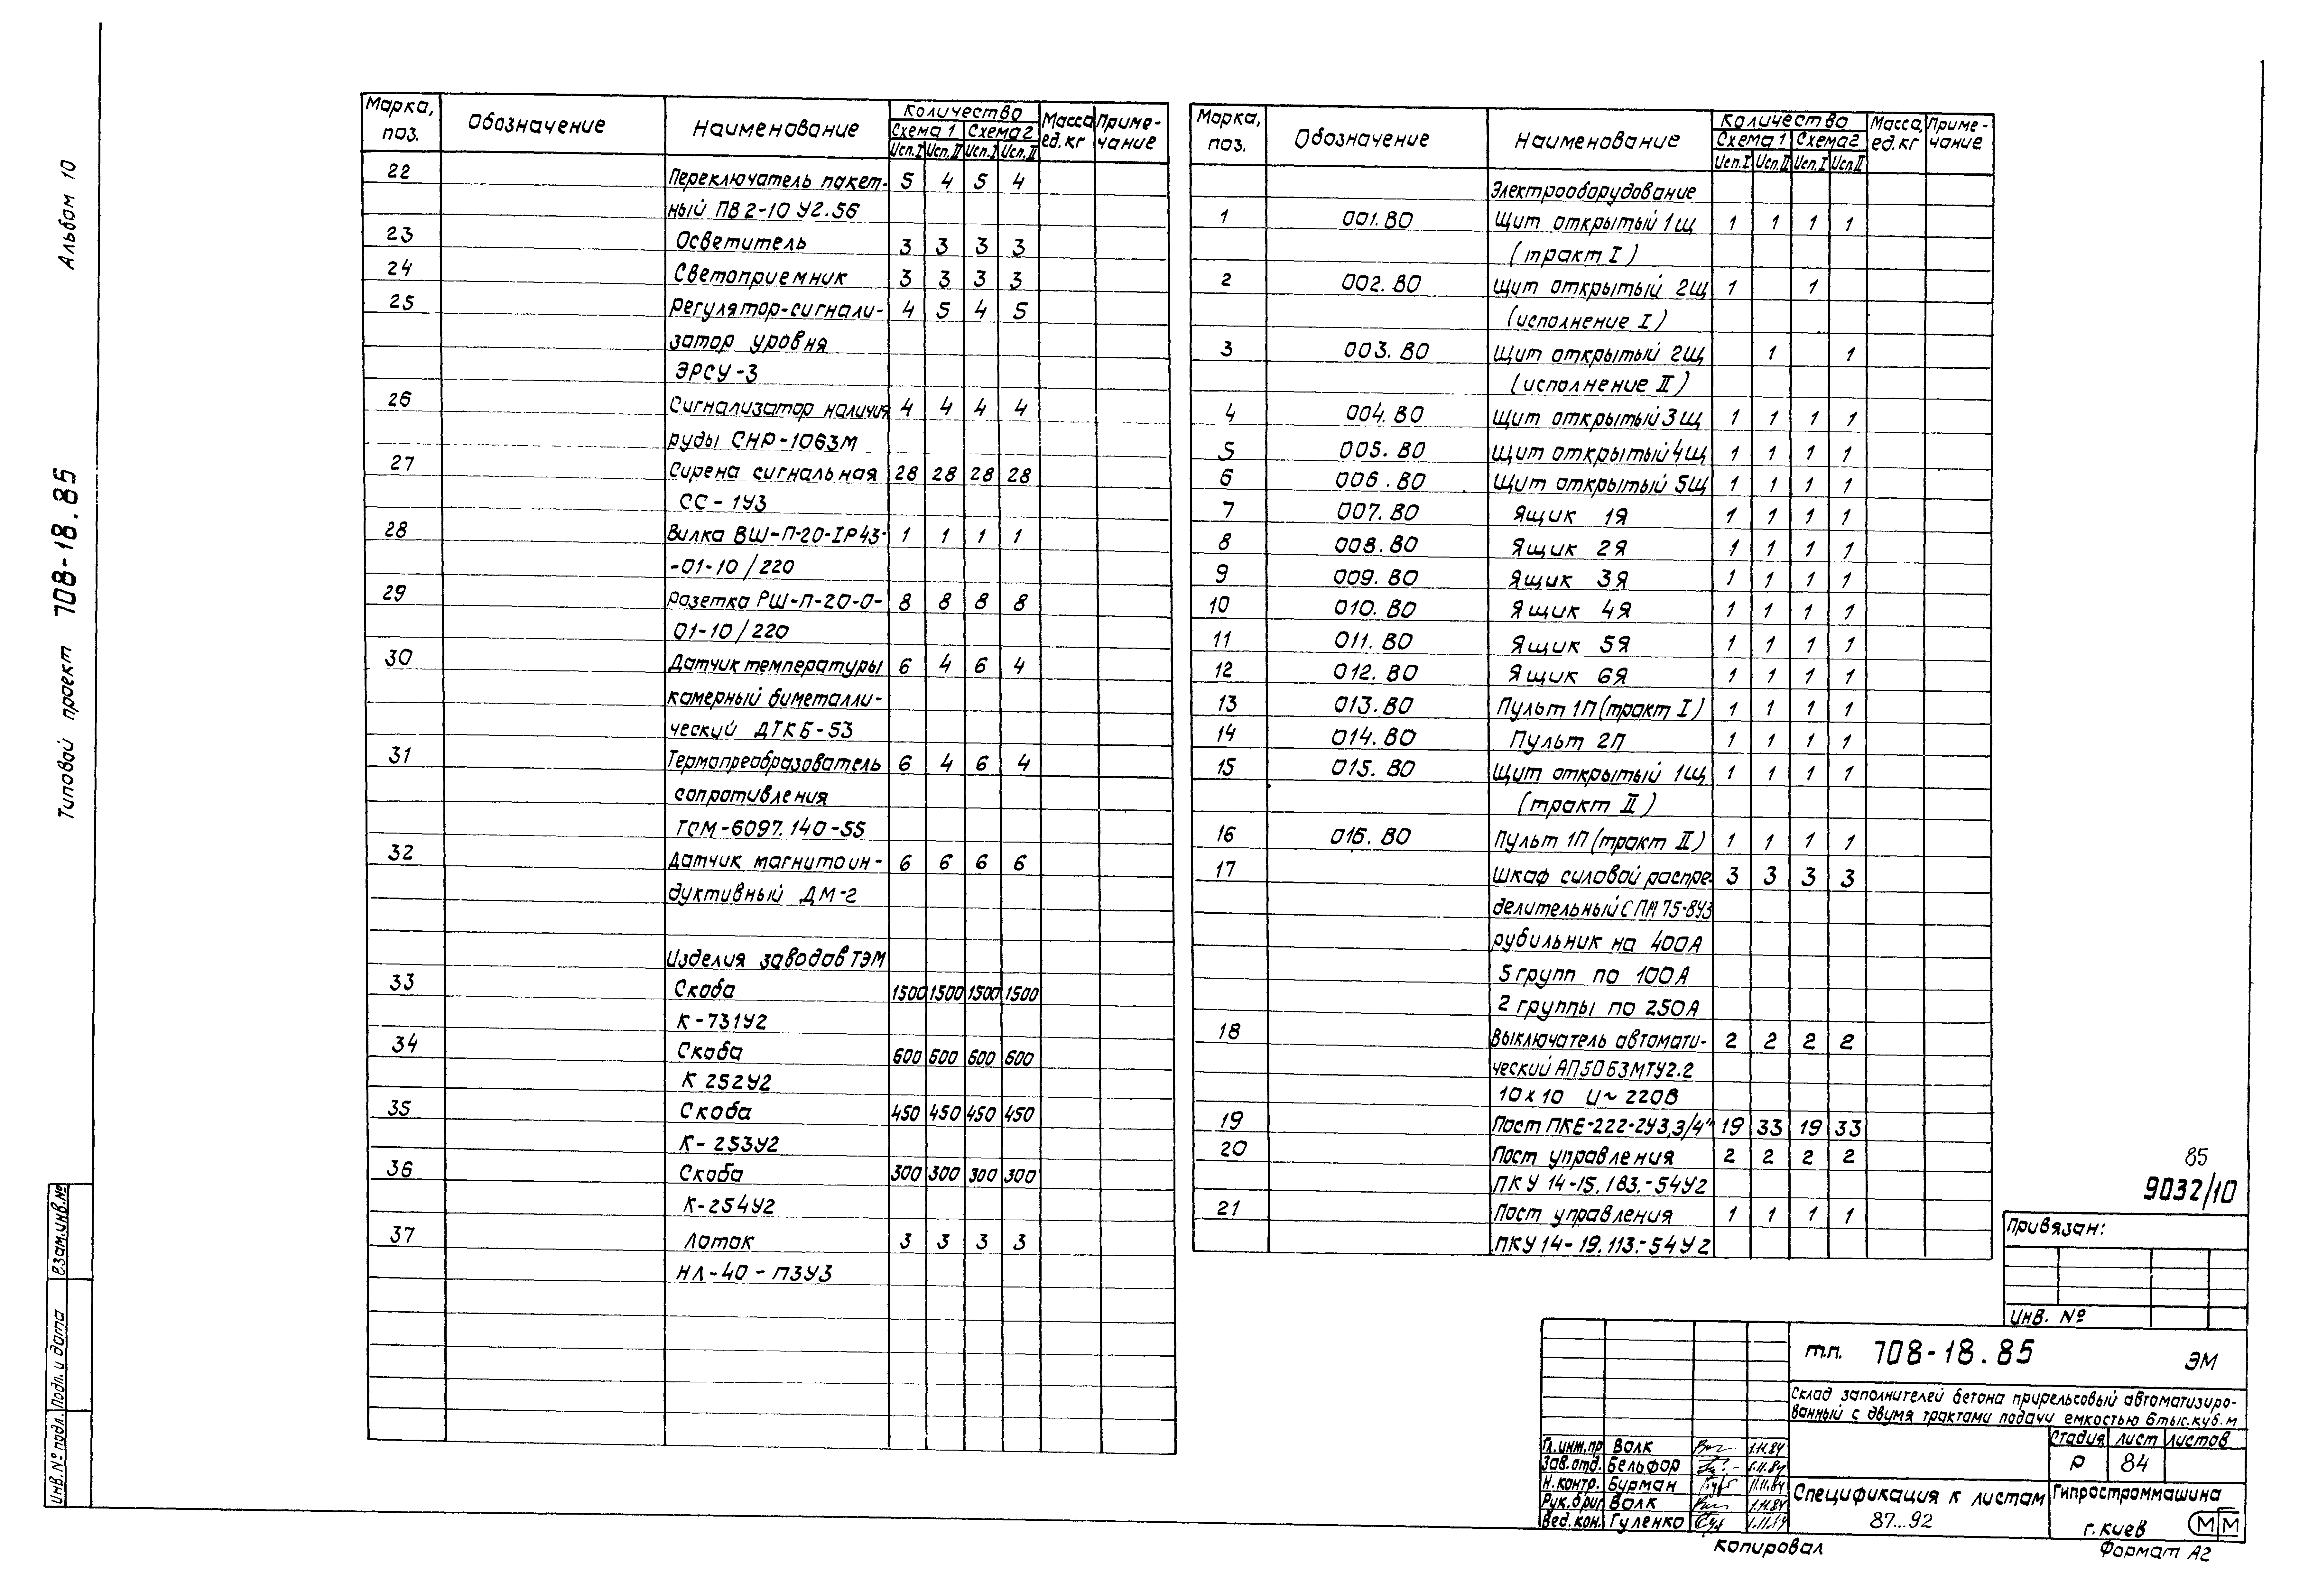 Альбом 10
Типовой проект 708-18.85
Взам.инв.№
Подп. и дата
Инв.№ подл.
Марка, поз. Обозначение Наименование Количество Масса ед.кг Приме-чание
Схема 1 Схема 2
Исп.I Исп.II Исп.I Исп.II
22 Переключатель пакет- 5 4 5 4
ный ПВ2-10 У2.56
23 Осветитель 3 3 3 3
24 Светоприемник 3 3 3 3
25 Регулятор-сигнали- 4 5 4 5
затор уровня
ЭРСУ-3
26 Сигнализатор наличия 4 4 4 4
руды СНР-1063М
27 Сирена сигнальная 28 28 28 28
СС-1У3
28 Вилка ВШ-П-20-IP43- 1 1 1 1
-01-10/220
29 Розетка РШ-П-20-0- 8 8 8 8
01-10/220
30 Датчик температуры 6 4 6 4
камерный биметалли-
ческий ДТКБ-53
31 Термопреобразователь 6 4 6 4
сопротивления
ТСМ-6097.140-55
32 Датчик магнитоин- 6 6 6 6
дуктивный ДМ-2
Изделия заводов ТЭМ
33 Скоба 1500 1500 1500 1500
К-731У2
34 Скоба 600 600 600 600
К 252У2
35 Скоба 450 450 450 450
К-253У2
36 Скоба 300 300 300 300
К-254У2
37 Лоток 3 3 3 3
НЛ-40-П3У3
Марка, поз. Обозначение Наименование Количество Масса, ед.кг Приме-чание
Схема 1 Схема 2
Исп.I Исп.II Исп.I Исп.II
Электрооборудование
1 001.ВО Щит открытый 1щ 1 1 1 1
(тракт I)
2 002.ВО Щит открытый 2щ 1 1
(исполнение I)
3 003.ВО Щит открытый 2щ 1 1
(исполнение II)
4 004.ВО Щит открытый 3щ 1 1 1 1
5 005.ВО Щит открытый 4щ 1 1 1 1
6 006.ВО Щит открытый 5щ 1 1 1 1
7 007.ВО Ящик 1Я 1 1 1 1
8 008.ВО Ящик 2Я 1 1 1 1
9 009.ВО Ящик 3Я 1 1 1 1
10 010.ВО Ящик 4Я 1 1 1 1
11 011.ВО Ящик 5Я 1 1 1 1
12 012.ВО Ящик 6Я 1 1 1 1
13 013.ВО Пульт 1П (тракт I) 1 1 1 1
14 014.ВО Пульт 2П 1 1 1 1
15 015.ВО Щит открытый 1щ 1 1 1 1
(тракт II)
16 016.ВО Пульт 1П (тракт II) 1 1 1 1
17 Шкаф силовой распре- 3 3 3 3
делительный СПМ 75-8У3
рубильник на 400А
5 групп по 100А
2 группы по 250А
18 Выключатель автомати- 2 2 2 2
ческий АП50Б3МТУ2.2
10х10 U~220В
19 Пост ПКЕ-222-2У3,3/4" 19 33 19 33
20 Пост управления 2 2 2 2
ПКУ 14-15.183.-54У2
21 Пост управления 1 1 1 1
ПКУ 14-19.113.-54У2
85
9032/10
Привязан:
Инв. №
т.п. 708-18.85 ЭМ
Склад заполнителей бетона прирельсовый автоматизиро-
ванный с двумя трактами подачи емкостью 6 тыс.куб.м
Стадия Лист Листов
Р 84
Гл.инж.пр Волк 1.11.84
Зав.отд. Бельфор
Н.контр. Бурман 11.11.84
Рук.бриг Волк 1.11.84
Вед.кон. Гуленко
Спецификация к листам
87...92
Гипростроммашина
г.Киев
ММ
Копировал
Формат А2